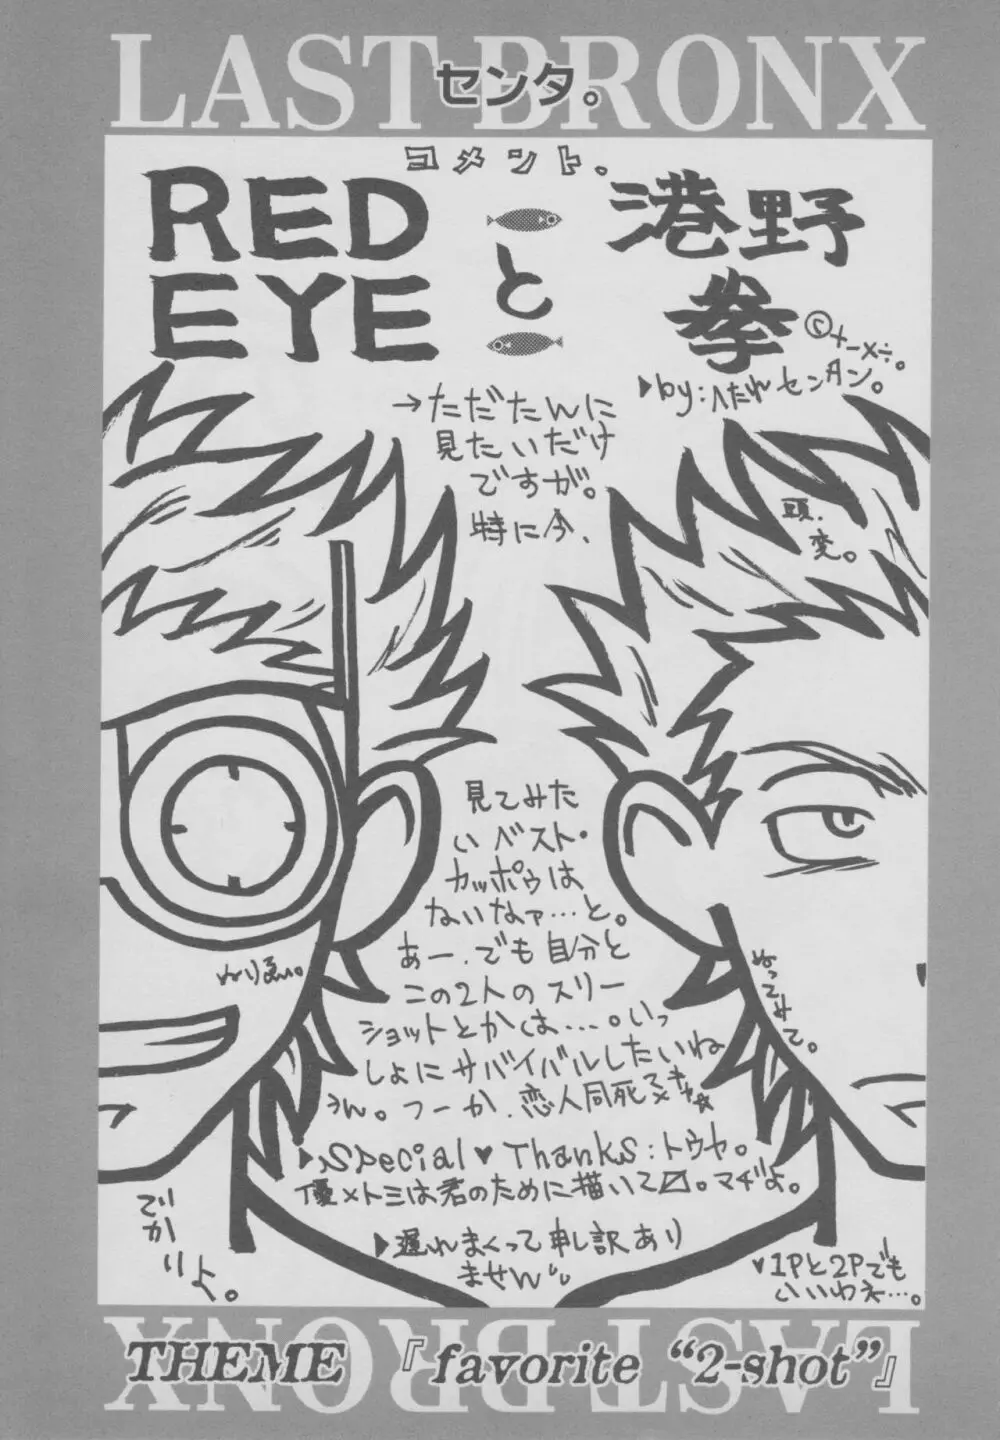 LAST BRONX
センタ。
コメント.
RED
EYE
と
港野
拳
by:へたれセンタン。
→ただたんに
見たいだけ
ですが。
特に今、
頭.
変。
見てみた
いベスト・
カッポゥは
ないなァ…と。
あー.でも自分と
この2人のスリー
ショットとかは…。いっ
しょにサバイバルしたいね
うん。つーか.恋人同死
ぬってみて。
▶Special♥Thanks:トウヤ。
優×トミは君のために描いて〼。マヂよ。
▶遅れまくって申し訳あり
ません
でか
りよ。
♥1Pと2Pでも
いいわネ…。
LAST BRONX
THEME 『favorite “2-shot”』